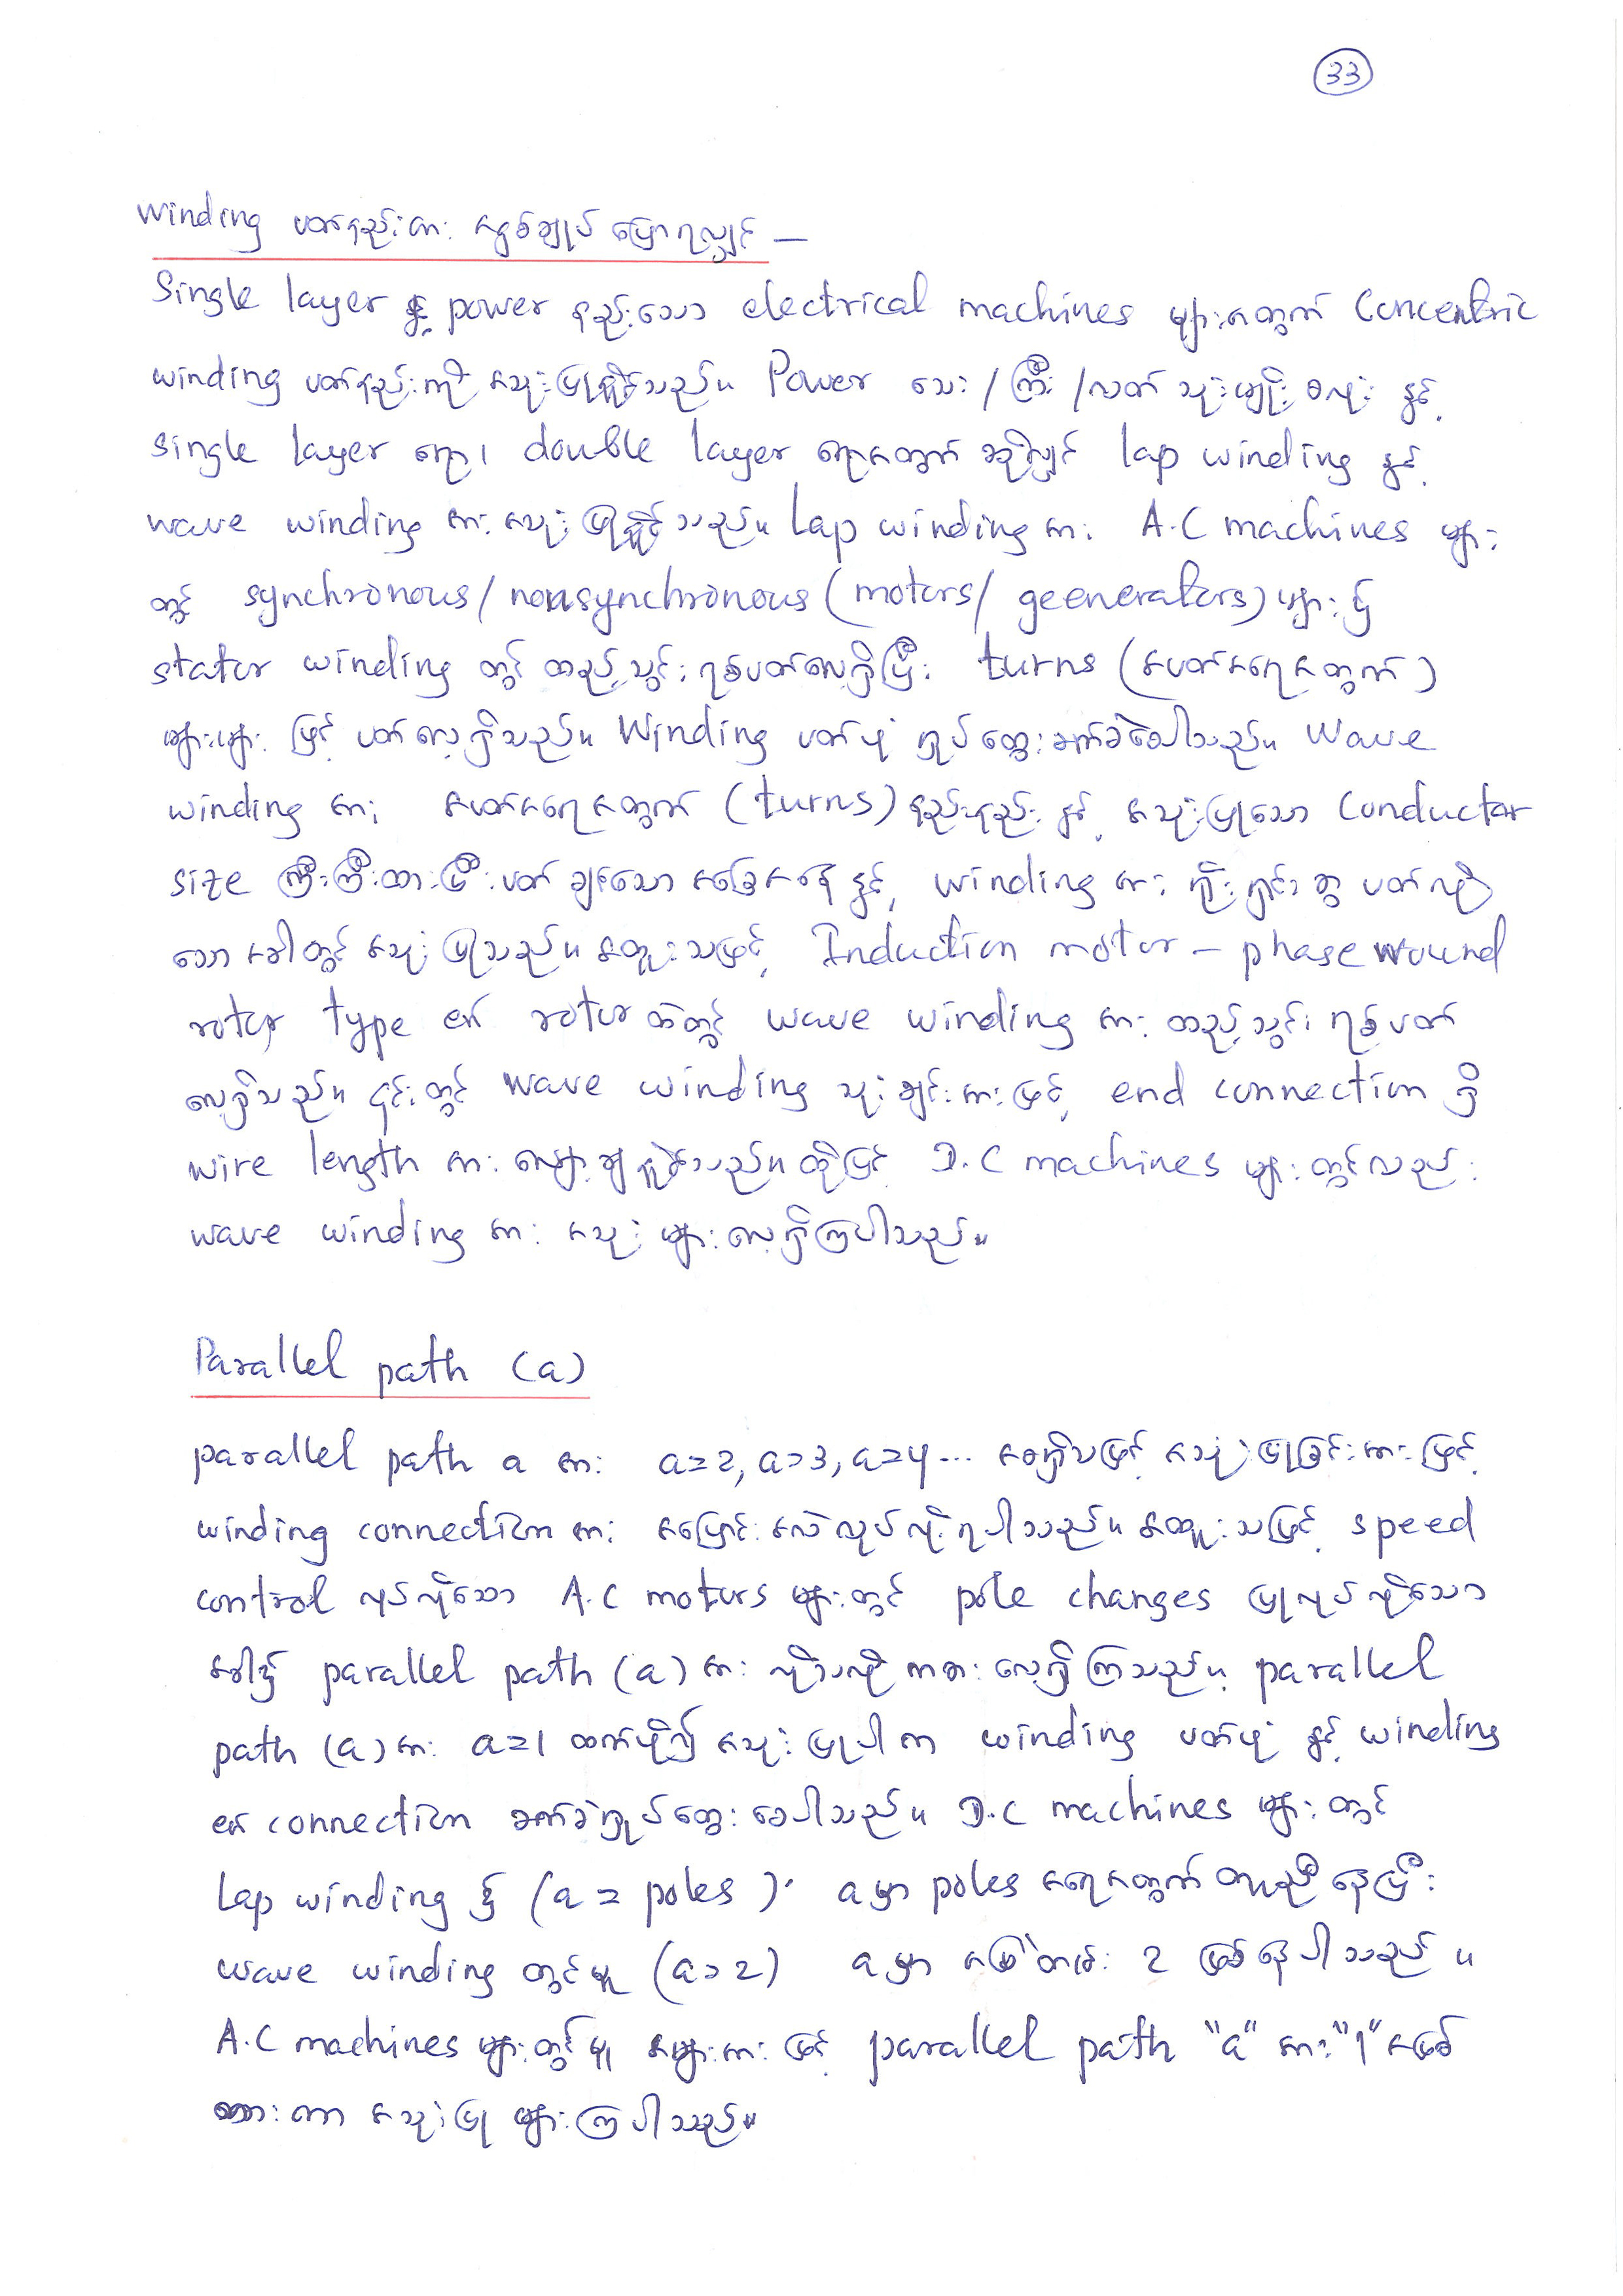 33
Winding ပတ်နည်းအား အနှစ်ချုပ် ပြောရလျှင် —
Single layer နှင့် power နည်းသော electrical machines များအတွက် Concentric
winding ပတ်နည်းကို အသုံးပြုနိုင်သည်။ Power သေး / ကြီး / လတ် သုံးမျိုး စလုံး နှင့်
single layer ရော၊ double layer ရောအတွက် ဆိုလျှင် lap winding နှင့်
wave winding အား အသုံးပြုနိုင်သည်။ Lap winding အား A.C machines များ
တွင် synchronous / nonsynchronous (motors / geenerators) များ၌
stator winding တွင် ထည့်သွင်း ရစ်ပတ်လေ့ရှိပြီး turns (အပတ်အရေအတွက်)
များများ ဖြင့် ပတ်လေ့ရှိသည်။ Winding ပတ်ပုံ ရှုပ်ထွေးခက်ခဲပေါသည်။ Wave
winding အား အပတ်အရေအတွက် (turns) နည်းနည်း နှင့် အသုံးပြုသော Conductor
size ကြီးကြီးထားပြီး ပတ်ချင်သော အခြေအနေ နှင့် winding အား ရိုးရှင်းစွာ ပတ်လို
သော အခါတွင် အသုံးပြုသည်။ အထူးသဖြင့် Induction motor – phase wound
rotor type ၏ rotor ထဲတွင် wave winding အား ထည့်သွင်း ရစ်ပတ်
လေ့ရှိသည်။ ၎င်းတွင် wave winding သုံးချင်းအားဖြင့် end connection ရှိ
wire length အား လျှော့ချနိုင်သည်။ ထို့ပြင် D.C machines များတွင်လည်း
wave winding အား အသုံးများလေ့ရှိကြပါသည်။
Parallel path (a)
parallel path a အား a=2, a=3, a=4 ... စသဖြင့် အသုံးပြုခြင်းအားဖြင့်
winding connection အား အပြောင်းအလဲလုပ်လို့ရပါသည်။ အထူးသဖြင့် speed
control လုပ်လိုသော A.C motors များတွင် pole changes ပြုလုပ်လိုသော
အခါ၌ parallel path (a) အား လိုသလို ကစားလေ့ရှိကြသည်။ parallel
path (a) အား a=1 ထက်ပို၍ အသုံးပြုပါက winding ပတ်ပုံ နှင့် winding
၏ connection ခက်ခဲရှုပ်ထွေးပေါသည်။ D.C machines များတွင်
Lap winding ၌ (a = poles) a မှာ poles အရေအတွက် တူညီနေပြီး
wave winding တွင်မူ (a=2) a မှာ အမြဲတမ်း 2 ဖြစ်နေပါသည်။
A.C machines များတွင်မူ အများအားဖြင့် parallel path "a" အား "1" အဖြစ်
ထားကာ အသုံးပြုများကြပါသည်။